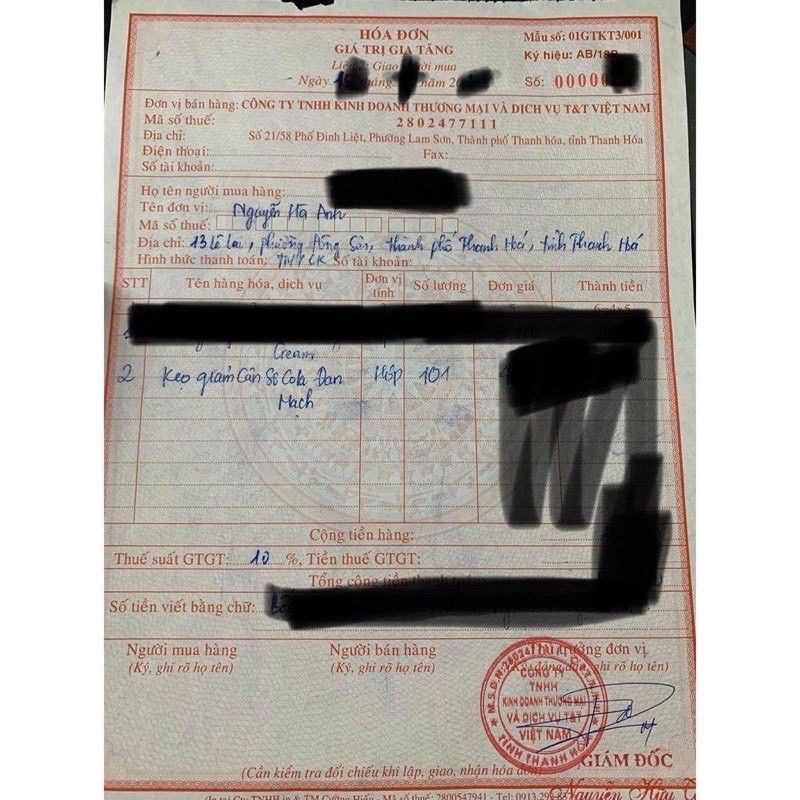 HÓA ĐƠN
GIÁ TRỊ GIA TĂNG
Liên 2: Giao người mua
Ngày 15 tháng năm 20
Mẫu số: 01GTKT3/001
Ký hiệu: AB/18P
Số: 00000
Đơn vị bán hàng: CÔNG TY TNHH KINH DOANH THƯƠNG MẠI VÀ DỊCH VỤ T&T VIỆT NAM
Mã số thuế: 2802477111
Địa chỉ: Số 21/58 Phố Đinh Liệt, Phường Lam Sơn, Thành phố Thanh hóa, tỉnh Thanh Hóa
Điện thoại: Fax:
Số tài khoản:
Họ tên người mua hàng:
Tên đơn vị: Nguyễn Hạ Anh
Mã số thuế:
Địa chỉ: 13 Lê Lai, phường Đông Sơn, thành phố Thanh Hoá, tỉnh Thanh Hoá
Hình thức thanh toán: TM/CK Số tài khoản:
STT Tên hàng hóa, dịch vụ Đơn vị tính Số lượng Đơn giá Thành tiền
Cream
2 Kẹo giảm Cân Sô Cola Đan Hộp 101
Mạch
Cộng tiền hàng:
Thuế suất GTGT: 10 %, Tiền thuế GTGT:
Tổng cộng tiền thanh toán:
Số tiền viết bằng chữ:
Người mua hàng Người bán hàng Thủ trưởng đơn vị
(Ký, ghi rõ họ tên) (Ký, ghi rõ họ tên) (Ký, đóng dấu, ghi rõ họ tên)
CÔNG TY
TNHH
KINH DOANH THƯƠNG MẠI
VÀ DỊCH VỤ T&T
VIỆT NAM
TỈNH THANH HÓA
GIÁM ĐỐC
(Cần kiểm tra đối chiếu khi lập, giao, nhận hóa đơn)
Nguyễn Hữu
(In tại Cty TNHH in & TM Cường Hiếu - Mã số thuế: 2800547941 - Tel: 0913.29